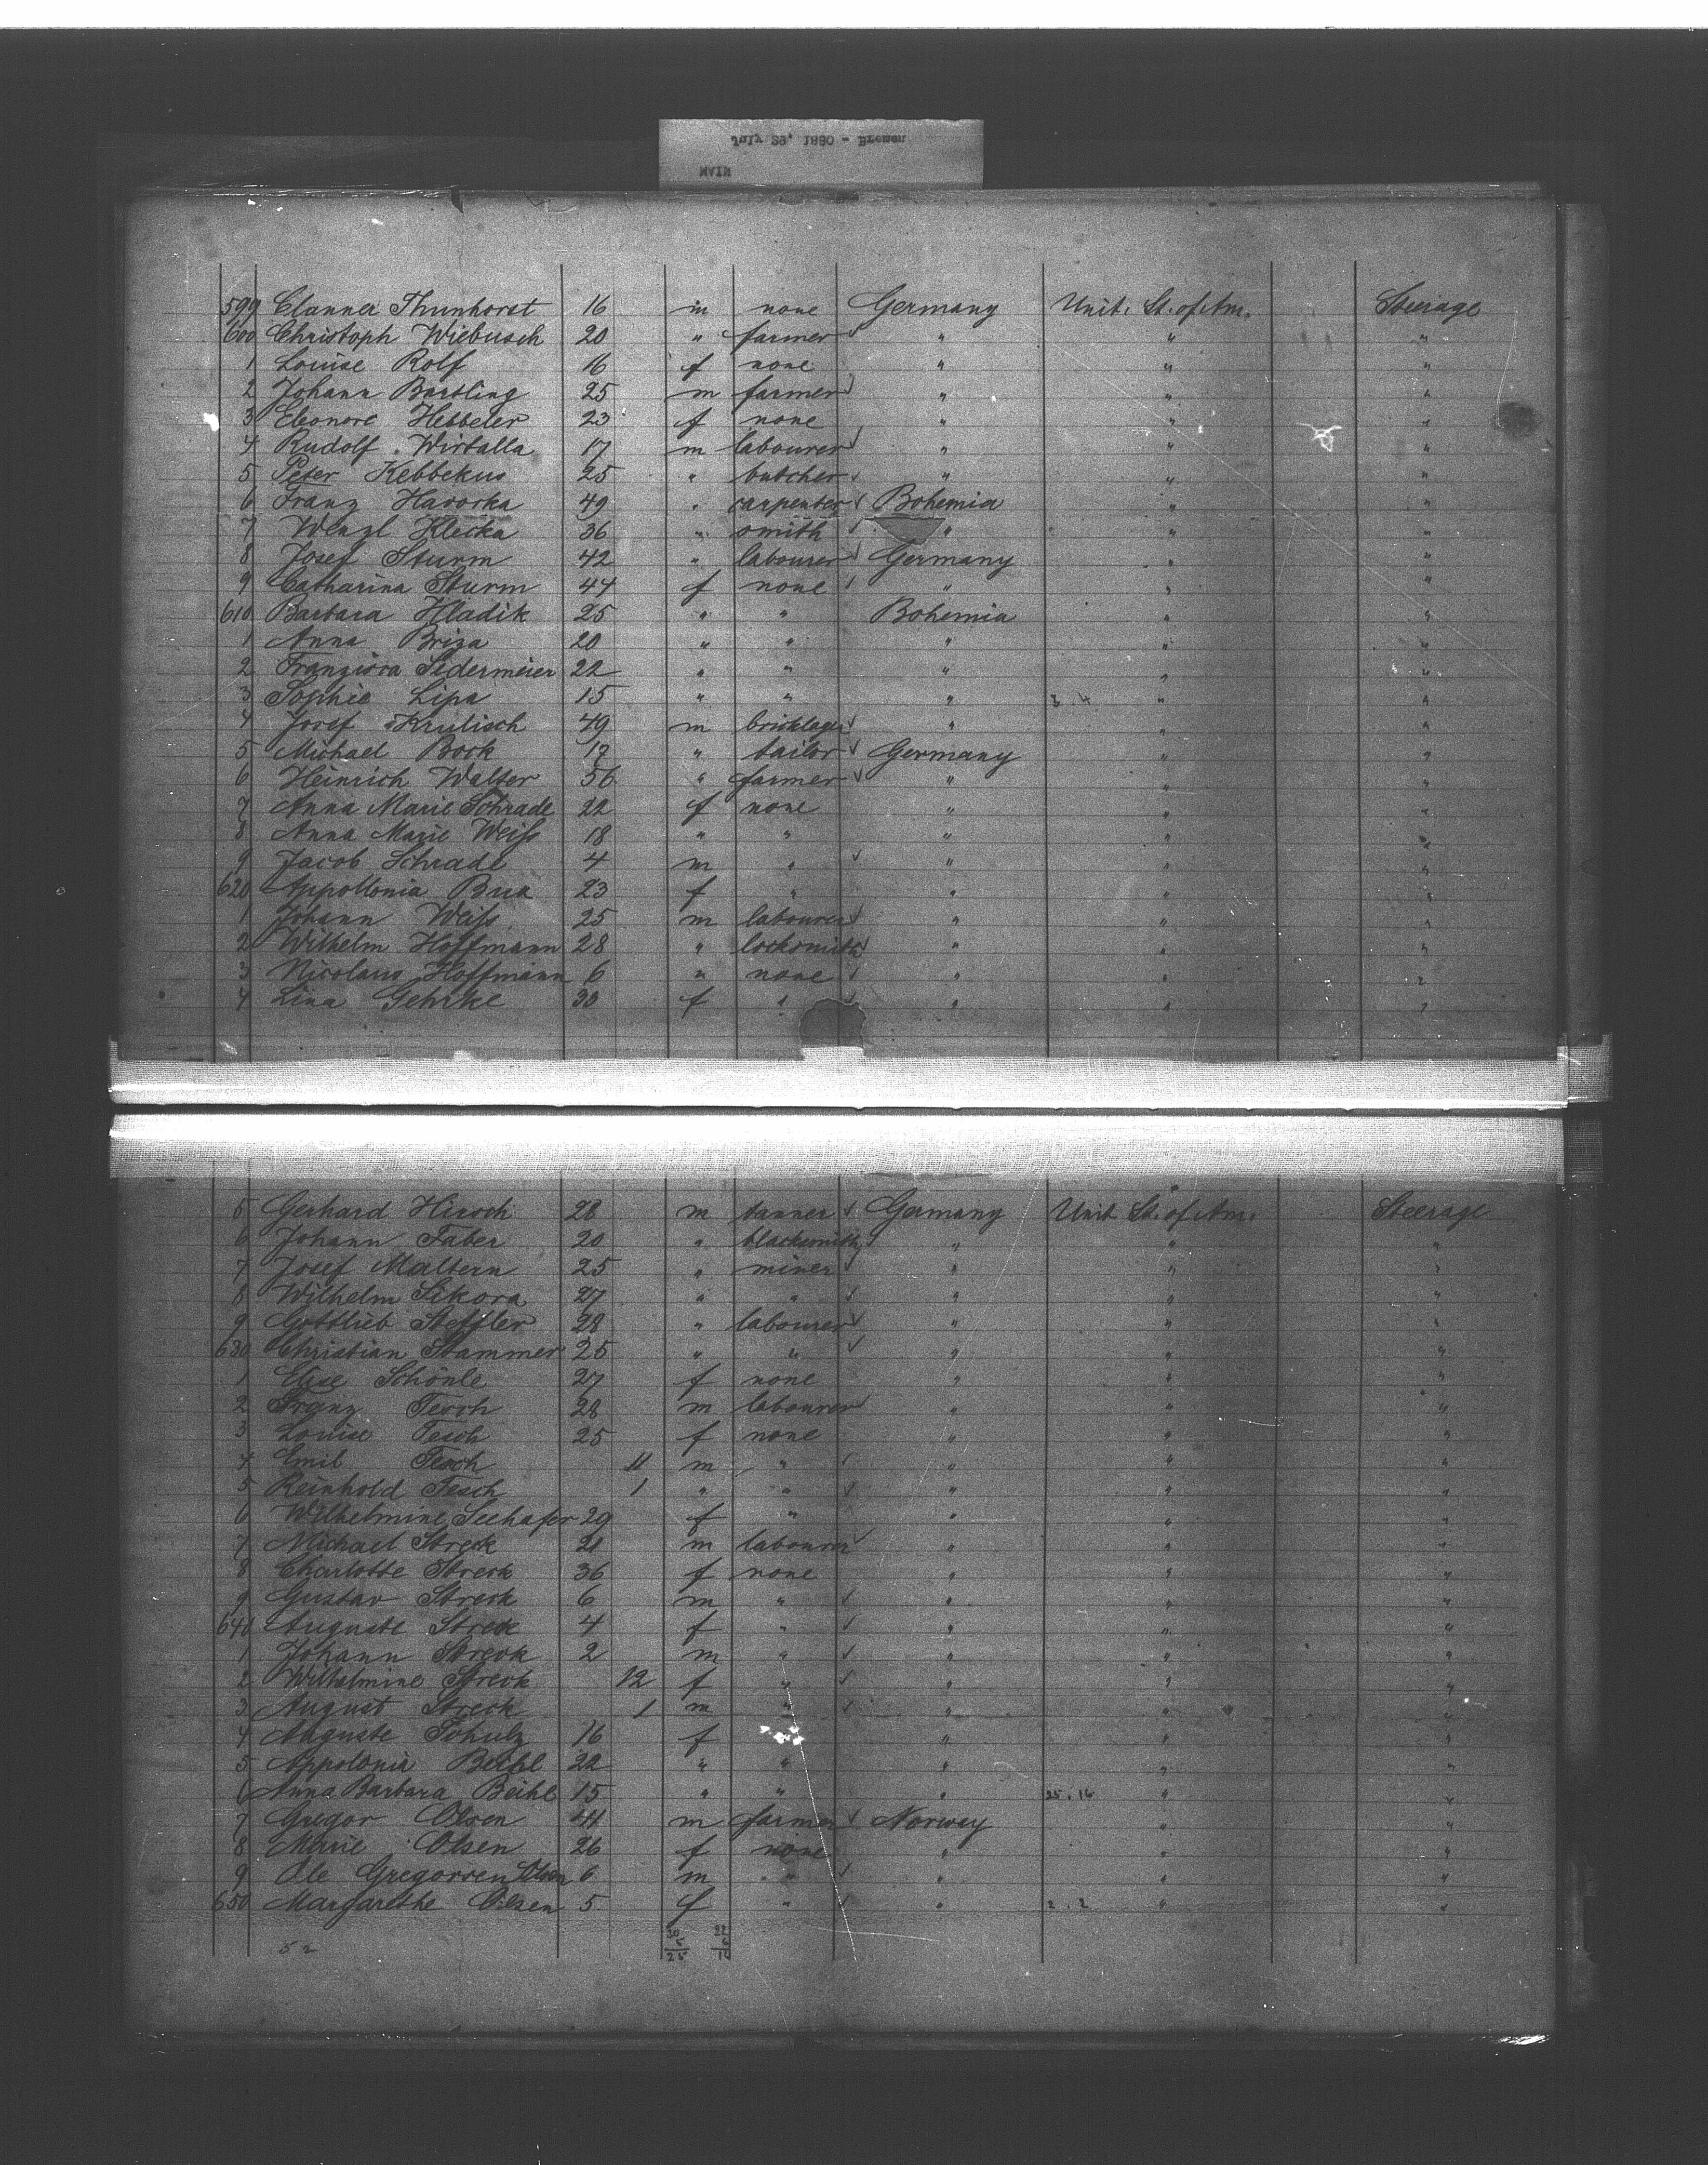 July 29, 1880 - Bremen
MAIN
599 Clanner Thunhorst 16 m none Germany Unit. St. of Am. Steerage
600 Christoph Wiebusch 20 " farmer " " "
1 Louise Rolf 16 f none " " "
2 Johann Bartling 25 m farmer " " "
3 Eleonore Hebbeler 23 f none " " "
4 Rudolf Wirtalla 17 m labourer " " "
5 Peter Kebbekus 25 " butcher " " "
6 Franz Havorka 49 " carpenter Bohemia " "
7 Wenzl Klecka 36 " smith " " "
8 Josef Sturm 42 " labourer Germany " "
9 Catharina Sturm 44 f none " " "
610 Barbara Hladik 25 " " Bohemia " "
1 Anna Briza 20 " " " " "
2 Sedermeier 22 " " " " "
3 Sophie Lipa 15 " " " 3.4 " "
4 Josef Krulisch 49 m bricklayer " " "
5 Michael Bock 17 " tailor Germany " "
6 Heinrich Walter 56 " farmer " " "
7 Anna Marie Schrade 22 f none " " "
8 Anna Marie Weiss 18 " " " " "
9 Jacob Schrade 4 m " " " "
620 Appollonia 23 f " " " "
1 Johann Weiss 25 m labourer " " "
2 Wilhelm Hoffmann 28 " locksmith " " "
3 Nicolaus Hoffmann 6 " none " " "
4 Lina Gehrke 30 f " " " "
5 Gerhard Hirsch 28 m tanner Germany Unit St. of Am. Steerage
6 Johann Faber 20 " blacksmith " " "
7 Josef Maltern 25 " miner " " "
8 Wilhelm Sikora 27 " " " " "
9 Gottlieb Steffler 28 " labourer " " "
630 Christian Stammer 25 " " " " "
1 Elise Schönle 27 f none " " "
2 Franz Tesch 28 m labourer " " "
3 Louise Tesch 25 f none " " "
4 Emil Tesch 11 m " " " "
5 Reinhold Tesch 1 " " " " "
6 Wilhelmine Seehafer 29 f " " " "
7 Michael Streck 21 m labourer " " "
8 Charlotte Streck 36 f none " " "
9 Gustav Streck 6 m " " " "
640 Auguste Streck 4 f " " " "
1 Johann Streck 2 m " " " "
2 Wilhelmine Streck 12 f " " " "
3 August Streck 1 m " " " "
4 Auguste Schulz 16 f " " "
5 Appolonia Beihl 22 " " " " "
6 Anna Barbara Beihl 15 " " " 25.16 " "
7 Gregor Olsen 41 m farmer Norway " "
8 Marie Olsen 26 f none " " "
9 Ole Gregorsen Olsen 6 m " " " "
650 Margarethe Olsen 5 f " " 2.2 " "
52